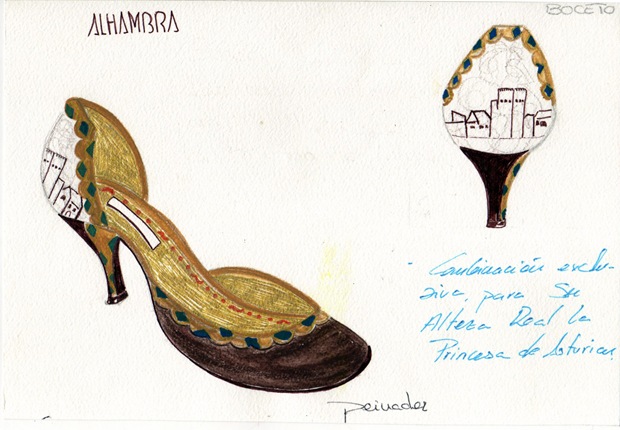 ALHAMBRA
BOCETO
- Combinación exclu-
siva, para Su
Alteza Real la
Princesa de Asturias.
peinador